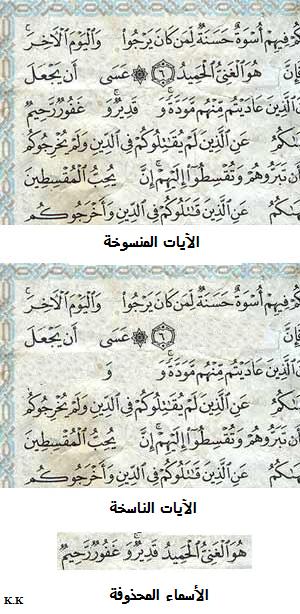 كُمْ فِيهِمْ أُسْوَةٌ حَسَنَةٌ لِّمَن كَانَ يَرْجُوا۟ وَٱلْيَوْمَ ٱلْأَخِرَ ۚ
فَإِنَّ هُوَ ٱلْغَنِىُّ ٱلْحَمِيدُ ٦ عَسَى أَن يَجْعَلَ
ٱلَّذِينَ عَادَيْتُم مِّنْهُم مَّوَدَّةً ۚ وَ قَدِيرٌ ۚ وَ غَفُورٌ رَّحِيمٌ
ـىٰكُمُ عَنِ ٱلَّذِينَ لَمْ يُقَٰتِلُوكُمْ فِى ٱلدِّينِ وَلَمْ يُخْرِجُوكُم
أَن تَبَرُّوهُمْ وَتُقْسِطُوٓا۟ إِلَيْهِمْ ۚ إِنَّ يُحِبُّ ٱلْمُقْسِطِينَ
ـىٰكُمُ عَنِ ٱلَّذِينَ قَٰتَلُوكُمْ فِى ٱلدِّينِ وَأَخْرَجُوكُم
الآيات المنسوخة
كُمْ فِيهِمْ أُسْوَةٌ حَسَنَةٌ لِّمَن كَانَ يَرْجُوا۟ وَٱلْيَوْمَ ٱلْأَخِرَ ۚ
فَإِنَّ ٦ عَسَى أَن يَجْعَلَ
ٱلَّذِينَ عَادَيْتُم مِّنْهُم مَّوَدَّةً ۚ وَ وَ
ـىٰكُمُ عَنِ ٱلَّذِينَ لَمْ يُقَٰتِلُوكُمْ فِى ٱلدِّينِ وَلَمْ يُخْرِجُوكُم
أَن تَبَرُّوهُمْ وَتُقْسِطُوٓا۟ إِلَيْهِمْ ۚ إِنَّ يُحِبُّ ٱلْمُقْسِطِينَ
ـىٰكُمُ عَنِ ٱلَّذِينَ قَٰتَلُوكُمْ فِى ٱلدِّينِ وَأَخْرَجُوكُم
الآيات الناسخة
هُوَ ٱلْغَنِىُّ ٱلْحَمِيدُ قَدِيرٌ ۚ وَ غَفُورٌ رَّحِيمٌ
الأسماء المحذوفة
K.K